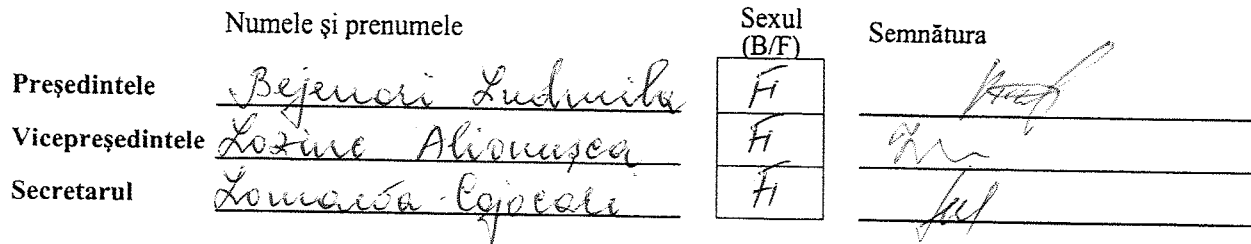 Numele și prenumele Sexul (B/F) Semnătura
Președintele Bejenari Ludmila F
Vicepreședintele Lozinc Alionușca F
Secretarul Cojocari F